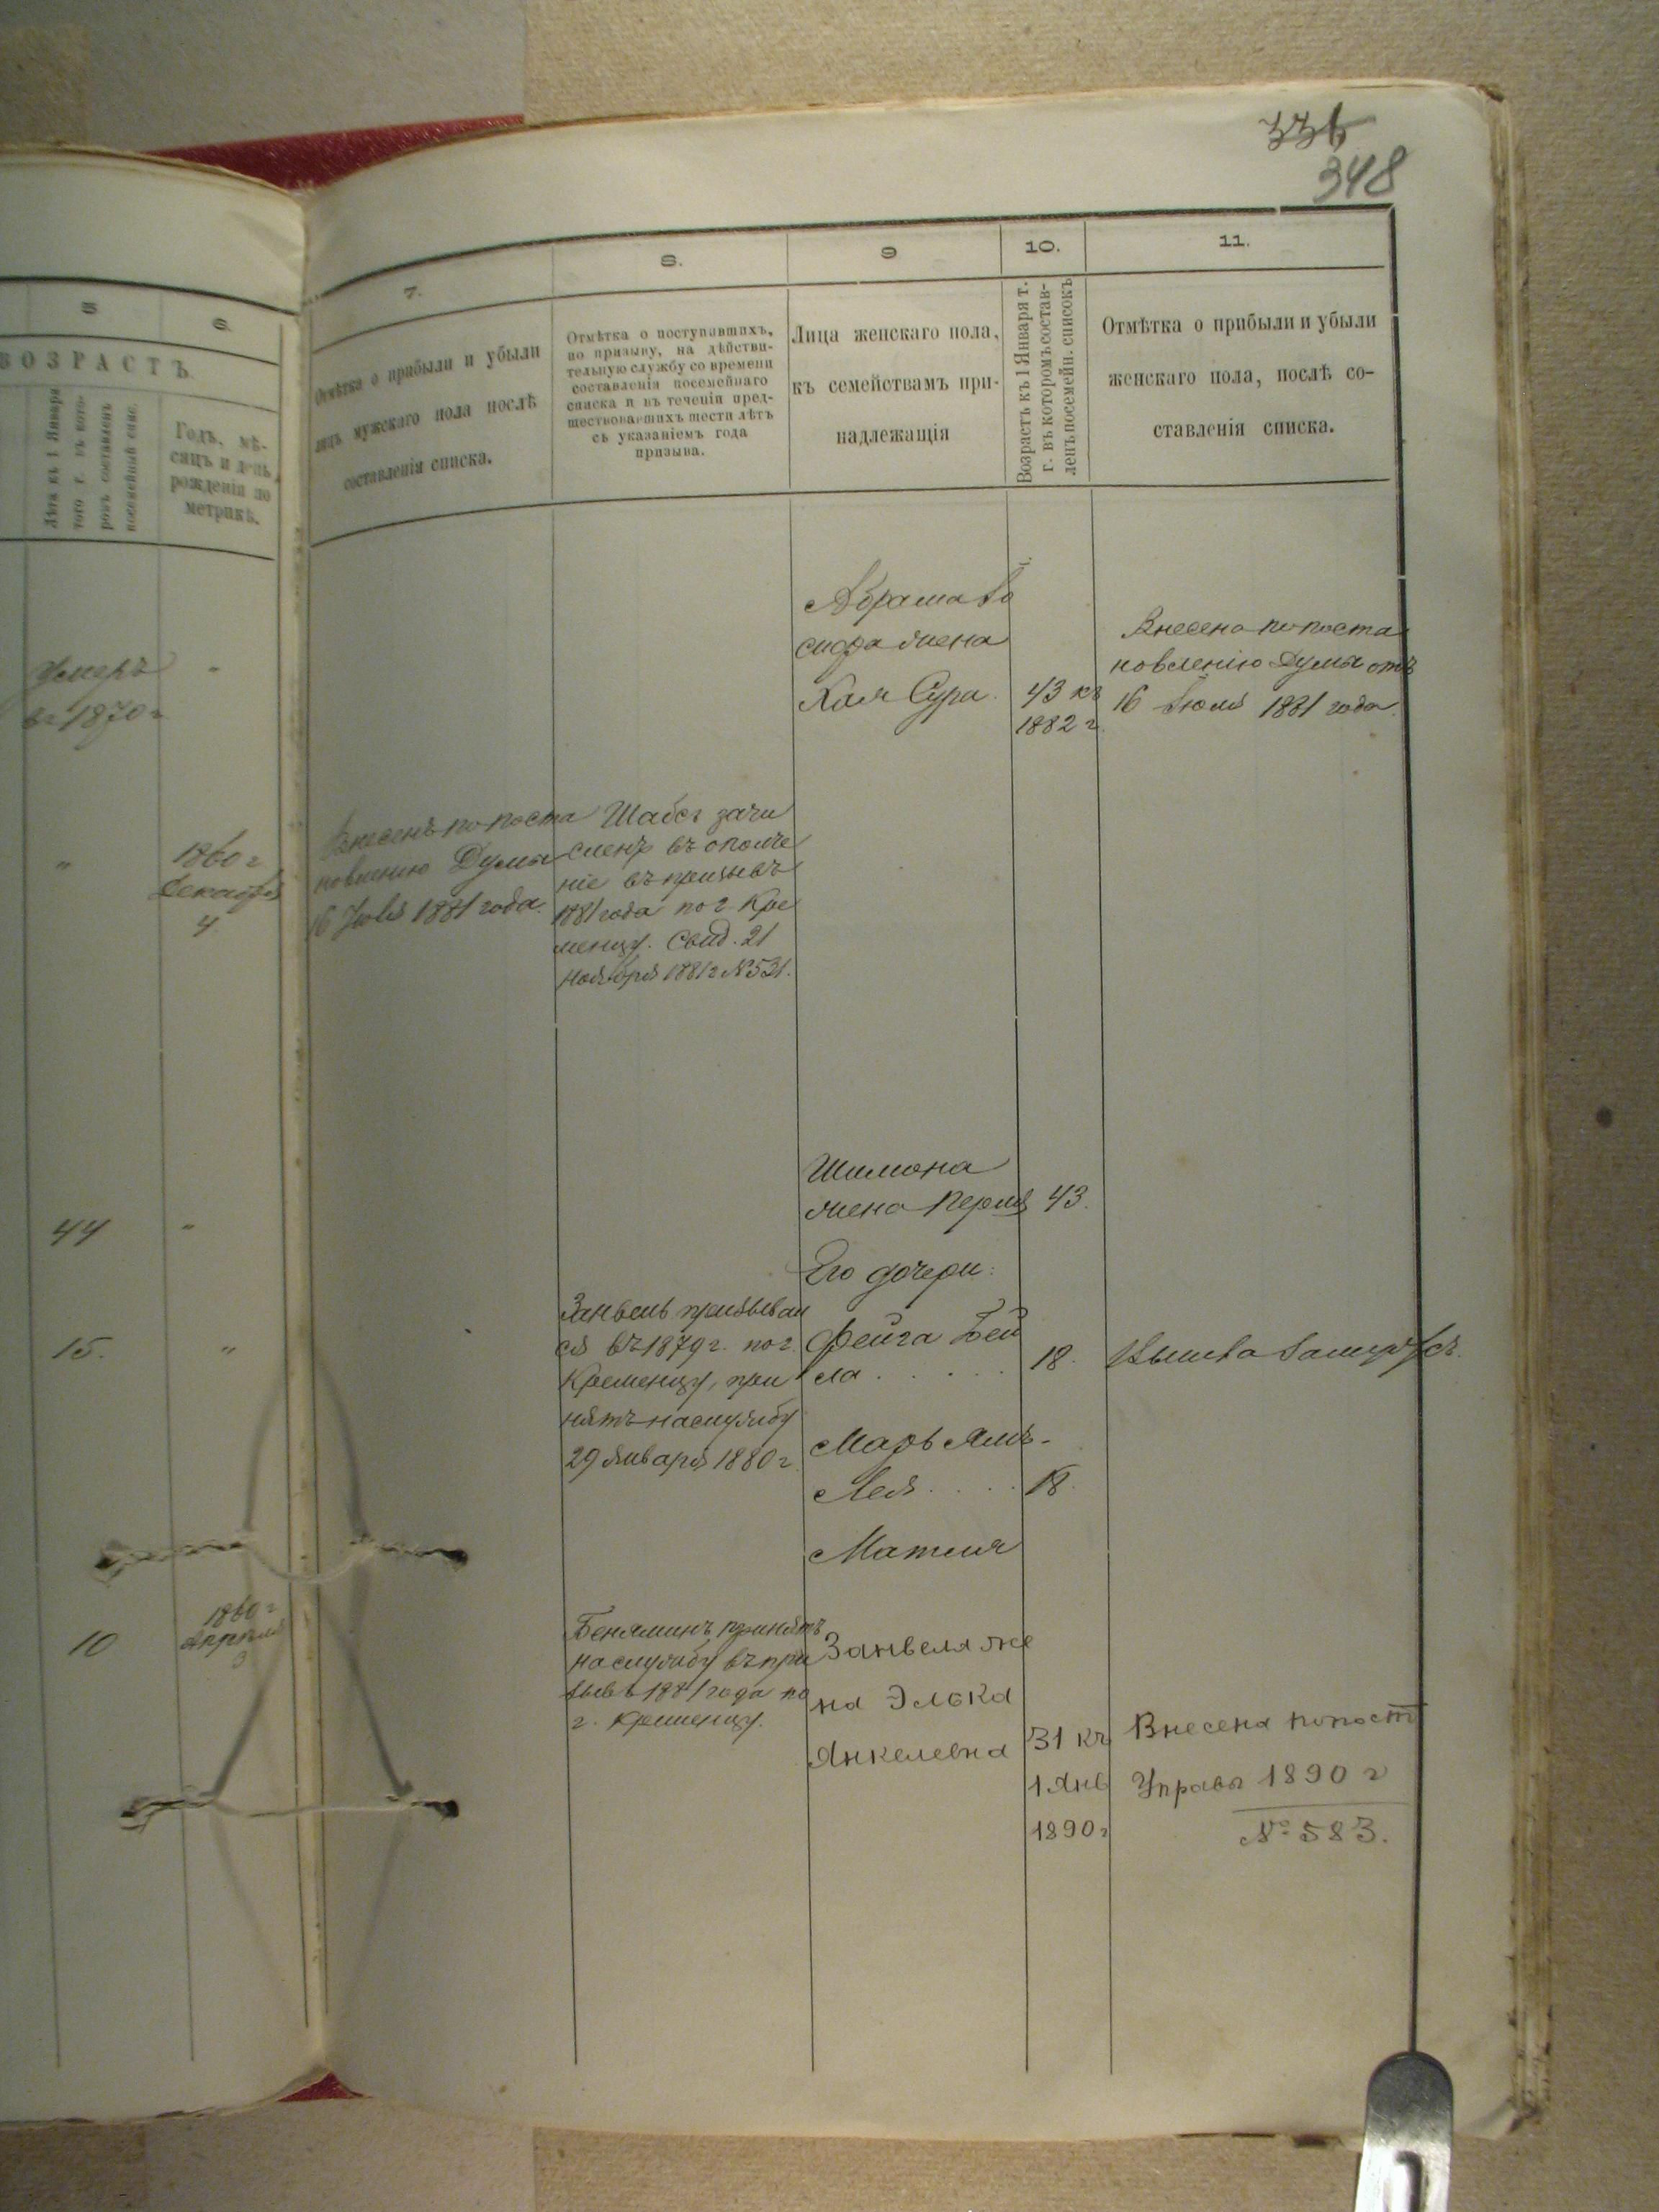 336
348
5
6.
ВОЗРАСТЪ
Лѣта къ 1 Января
того г. въ кото-
ромъ составленъ
посемейный спис.
Годъ, мѣ-
сяцъ и день
рожденія по
метрикѣ.
Умеръ
въ 1870 г
"
"
1860 г
Декабря
4
44
"
15.
"
10
1860 г
Апрѣля
3
7.
8.
9
10.
11.
Отмѣтка о прибыли и убыли
лицъ мужскаго пола послѣ
составленія списка.
Отмѣтка о поступившихъ,
по призыву, на дѣйстви-
тельную службу со времени
составленія посемейнаго
списка и въ теченіи пред-
шествовавшихъ шести лѣтъ
съ указаніемъ года
призыва.
Лица женскаго пола,
къ семействамъ при-
надлежащія
Возрастъ къ 1 Января т.
г. въ которомъ состав-
ленъ посемейн. списокъ
Отмѣтка о прибыли и убыли
женскаго пола, послѣ со-
ставленія списка.
Абрама Іо
сифа жена
Хая Сура.
43 къ
1882 г.
Внесена по поста
новленію Думы отъ
16 Іюля 1881 года.
Внесенъ по поста
новленію Думы
16 Іюля 1881 года.
Шабсъ зачи
сленъ въ ополче
ніе въ призывъ
1881 года по г. Кре
менцу. Свид. 21
ноября 1881 г № 531.
Шимона
жена Перля
43.
Его дочери:
Фейга Бей
ла . . . . .
18.
Марьямъ-
Лея . . . .
18.
Матля
Занвель призывал
ся въ 1879 г. по г.
Кременцу, при
нятъ на службу
29 Января 1880 г.
Вышла замужъ.
Беняминъ принятъ
на службу въ при
зывъ 1881 года по
г. Кременцу.
Занвеля же
на Элька
Янкелевна
31 къ
1 Янв
1890 г
Внесена по пост
Управы 1890 г
№ 583.